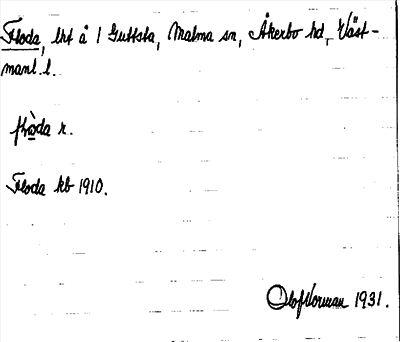 Floda, lht å 1 Guttsta, Malma sn, Åkerbo hd, Väst-
manl. l.
flὼda r.
Floda kb 1910.
Olof Norman 1931.